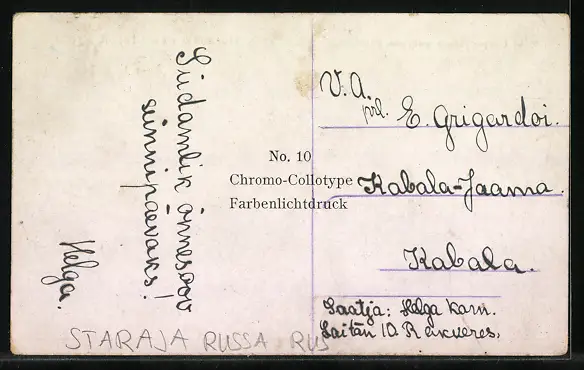 Südamlik õnnesoov
sünnipäevaks!
Helga.
No. 10
Chromo-Collotype
Farbenlichtdruck
V. A.
prl. E. Grigardoi.
Kabala-Jaama.
Kabala.
Saatja: Helga Karn.
Laitan 10. Rakveres.
STARAJA RUSSA RUS